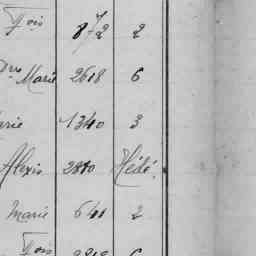 Fois 872 2
Dre Marie 2618 6
arie 1340 3
Alexis 2880 Hédé
Marie 641 2
Fois